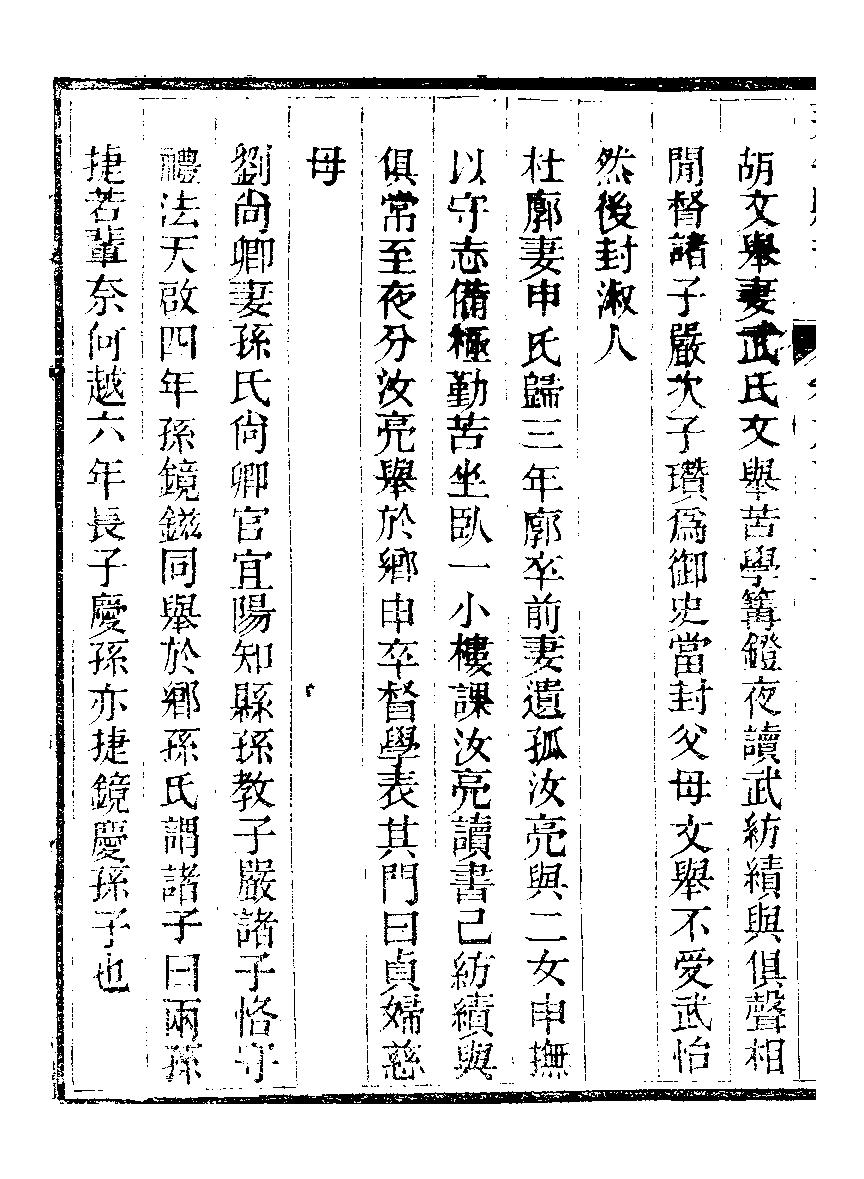 胡文舉妻武氏文舉苦學篝鐙夜讀武紡績與俱聲相
聞督諸子嚴次子瓚爲御史當封父母文舉不愛武怡
然後封淑人
杜廓妻申氏歸三年廓卒前妻遺孤汝亮與二女申撫
以守志備極勤苦坐臥一小樓課汝亮讀書己紡績與
俱常至夜分汝亮舉於鄉申卒督學表其門曰貞婦慈
母
劉尙卿妻孫氏尙卿官宜陽知縣孫教子嚴諸子恪守
禮法天啟四年孫鏡鎡同舉於鄉孫氏謂諸子曰兩孫
捷若輩奈何越六年長子慶孫亦捷鏡慶孫子也